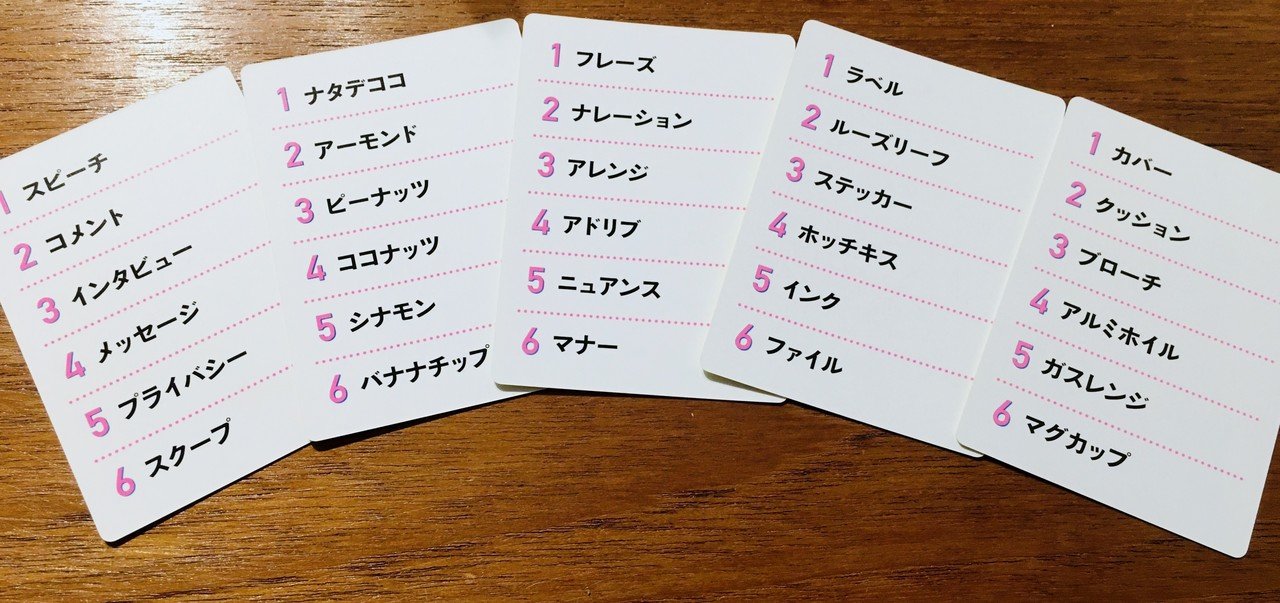 1 スピーチ
2 コメント
3 インタビュー
4 メッセージ
5 プライバシー
6 スクープ
1 ナタデココ
2 アーモンド
3 ピーナッツ
4 ココナッツ
5 シナモン
6 バナナチップ
1 フレーズ
2 ナレーション
3 アレンジ
4 アドリブ
5 ニュアンス
6 マナー
1 ラベル
2 ルーズリーフ
3 ステッカー
4 ホッチキス
5 インク
6 ファイル
1 カバー
2 クッション
3 ブローチ
4 アルミホイル
5 ガスレンジ
6 マグカップ